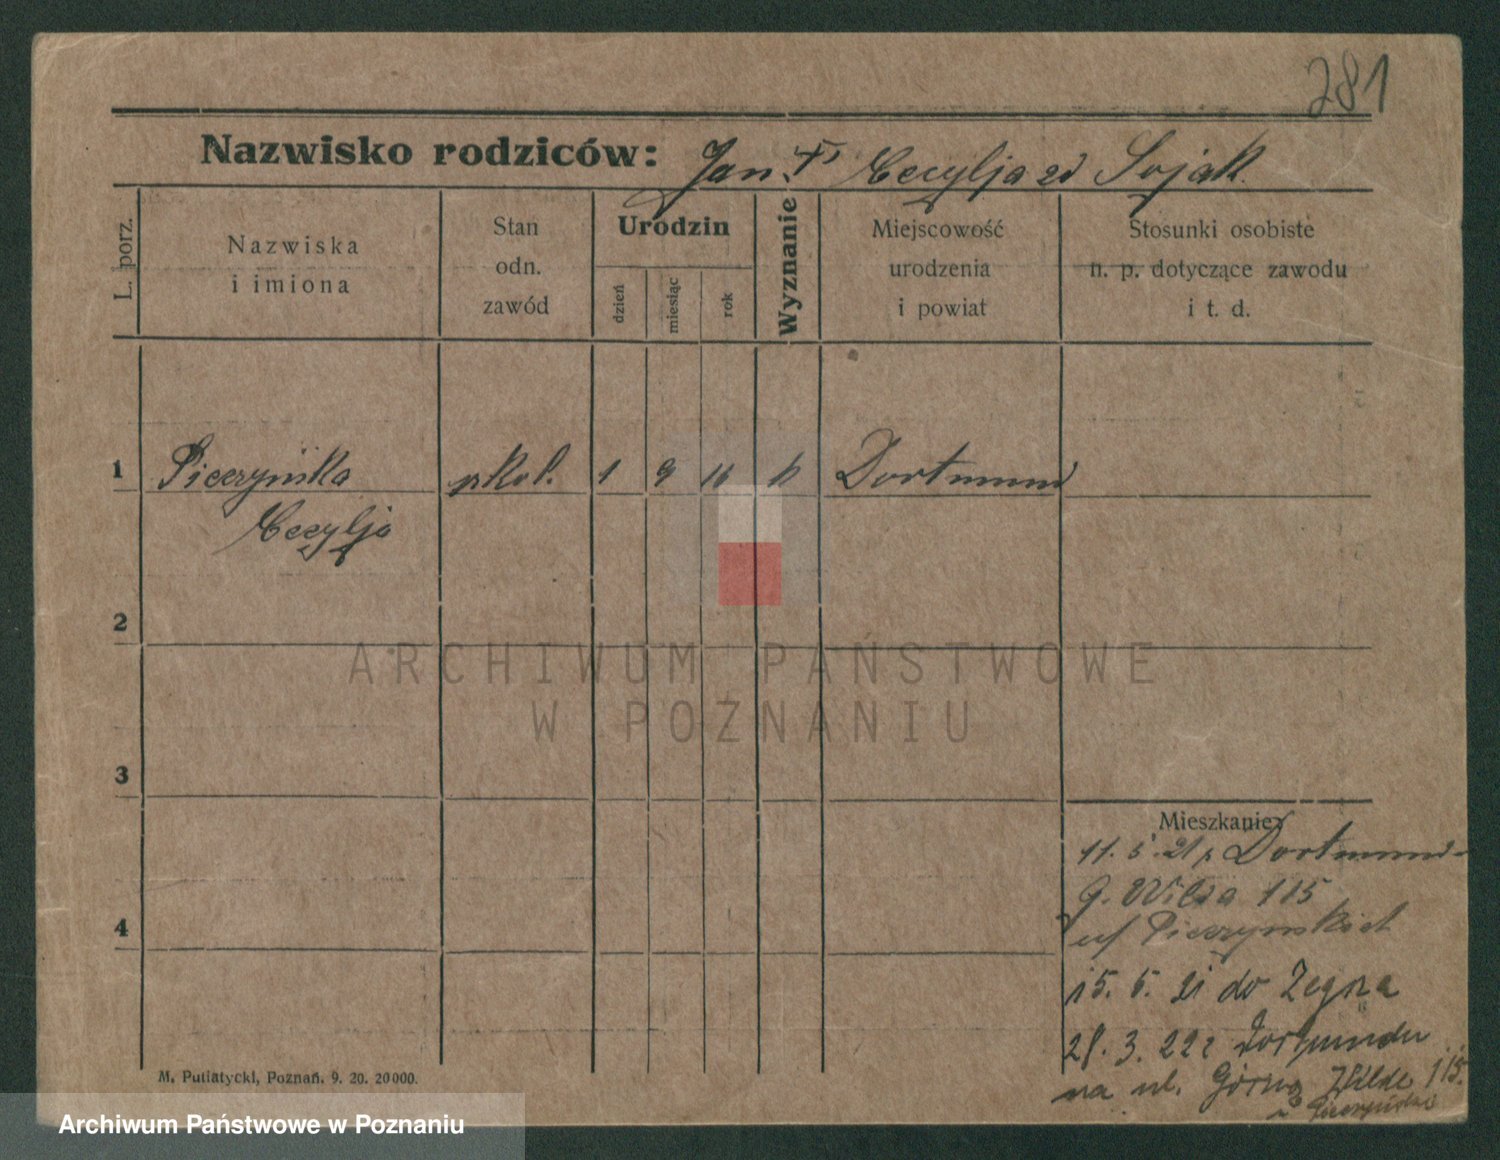 281
Nazwisko rodziców: Jan Cecylja zd Sojak.
L. porz.
Nazwiska
i imiona
Stan
odn.
zawód
Urodzin
dzień
miesiąc
rok
Wyznanie
Miejscowość
urodzenia
i powiat
Stosunki osobiste
n. p. dotyczące zawodu
i t. d.
1 Pieczyńska 1 9 k Dortmund
Cecylja
2
3
Mieszkanie
11. 5. 21 Dortmund
G. Wilda 115
4 Pieczyńskich
15. 6. 21 do Zegrza
28. 3. 22 z Dortmundu
na ul. Górną Wildę 115.
M. Putiatycki, Poznań. 9. 20. 20000.
ARCHIWUM PAŃSTWOWE
W POZNANIU
Archiwum Państwowe w Poznaniu